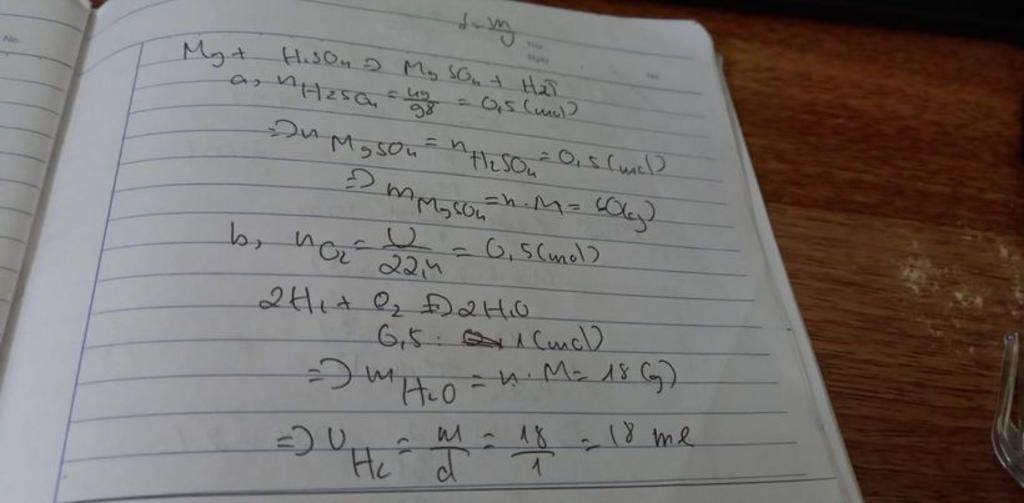 d = m/v
Mg + H2SO4 => MgSO4 + H2↑
a, nH2SO4 = 49/98 = 0,5 (mol)
=> nMgSO4 = nH2SO4 = 0,5 (mol)
=> mMgSO4 = n.M = 60(g)
b, nO2 = V/22,4 = 0,5 (mol)
2H2 + O2 => 2H2O
0,5 : 1 (mol)
=> mH2O = n.M = 18 (g)
=> VH2 = m/d = 18/1 = 18 ml